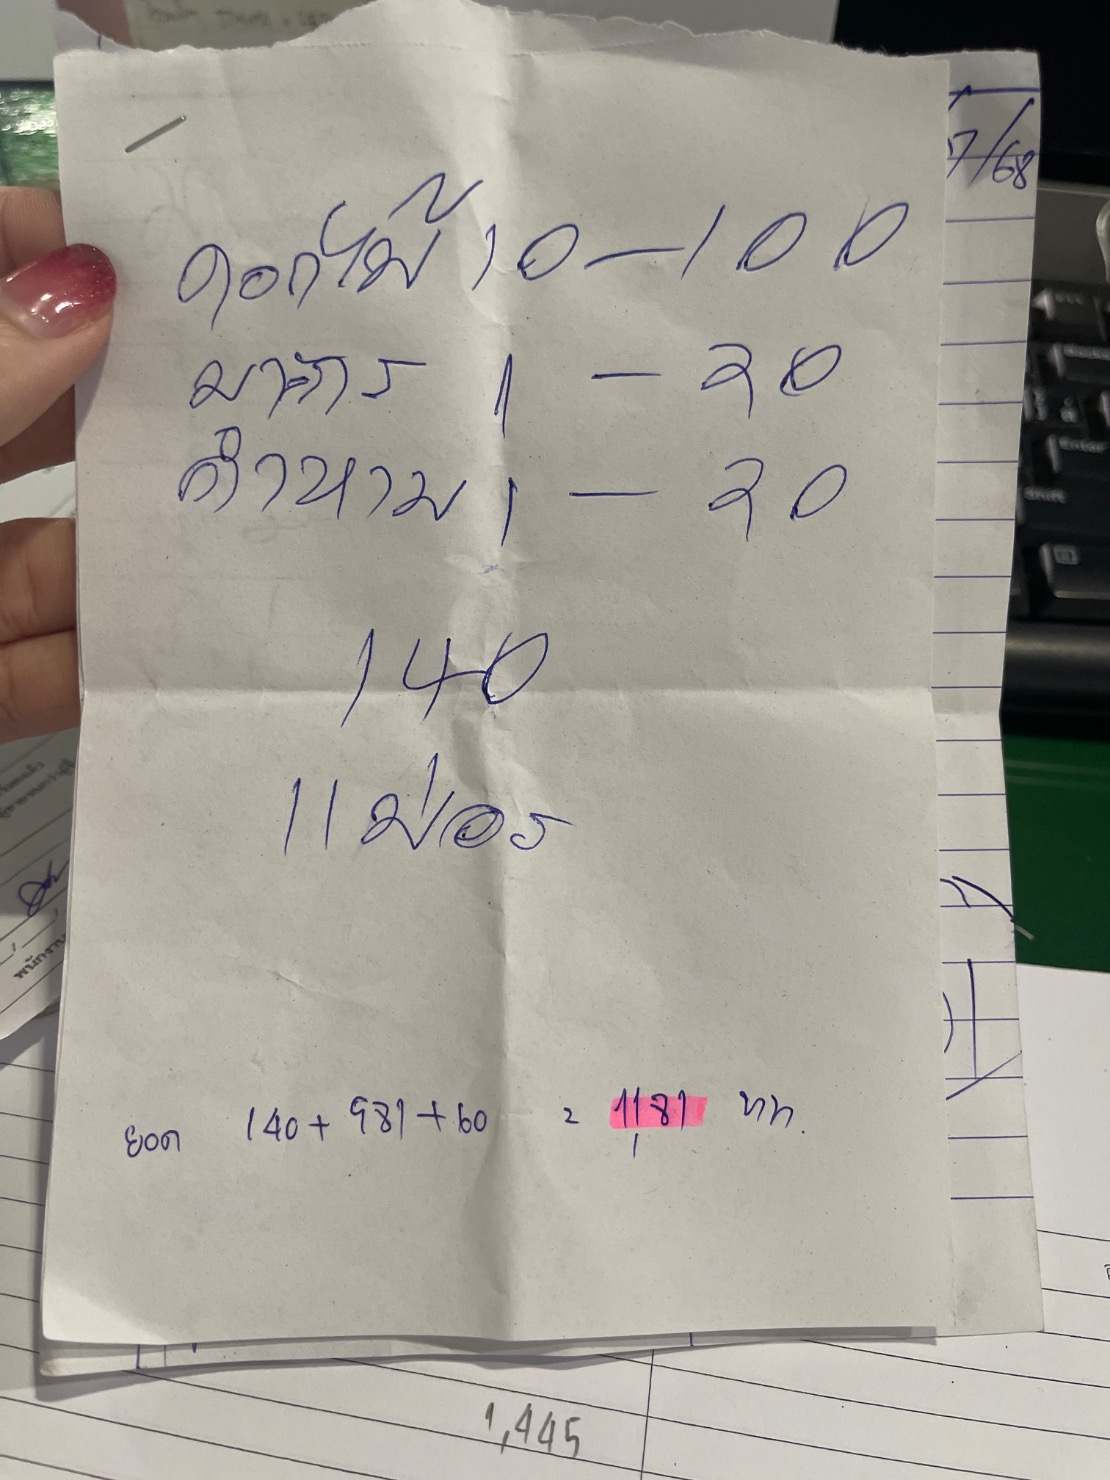 7/68
ดอกไม้ 10 - 100
มาะกร 1 - 20
กำยาน 1 - 20
140
11 ม่อร
ยอด 140 + 981 + 60 = 1181 บาท.
1,445